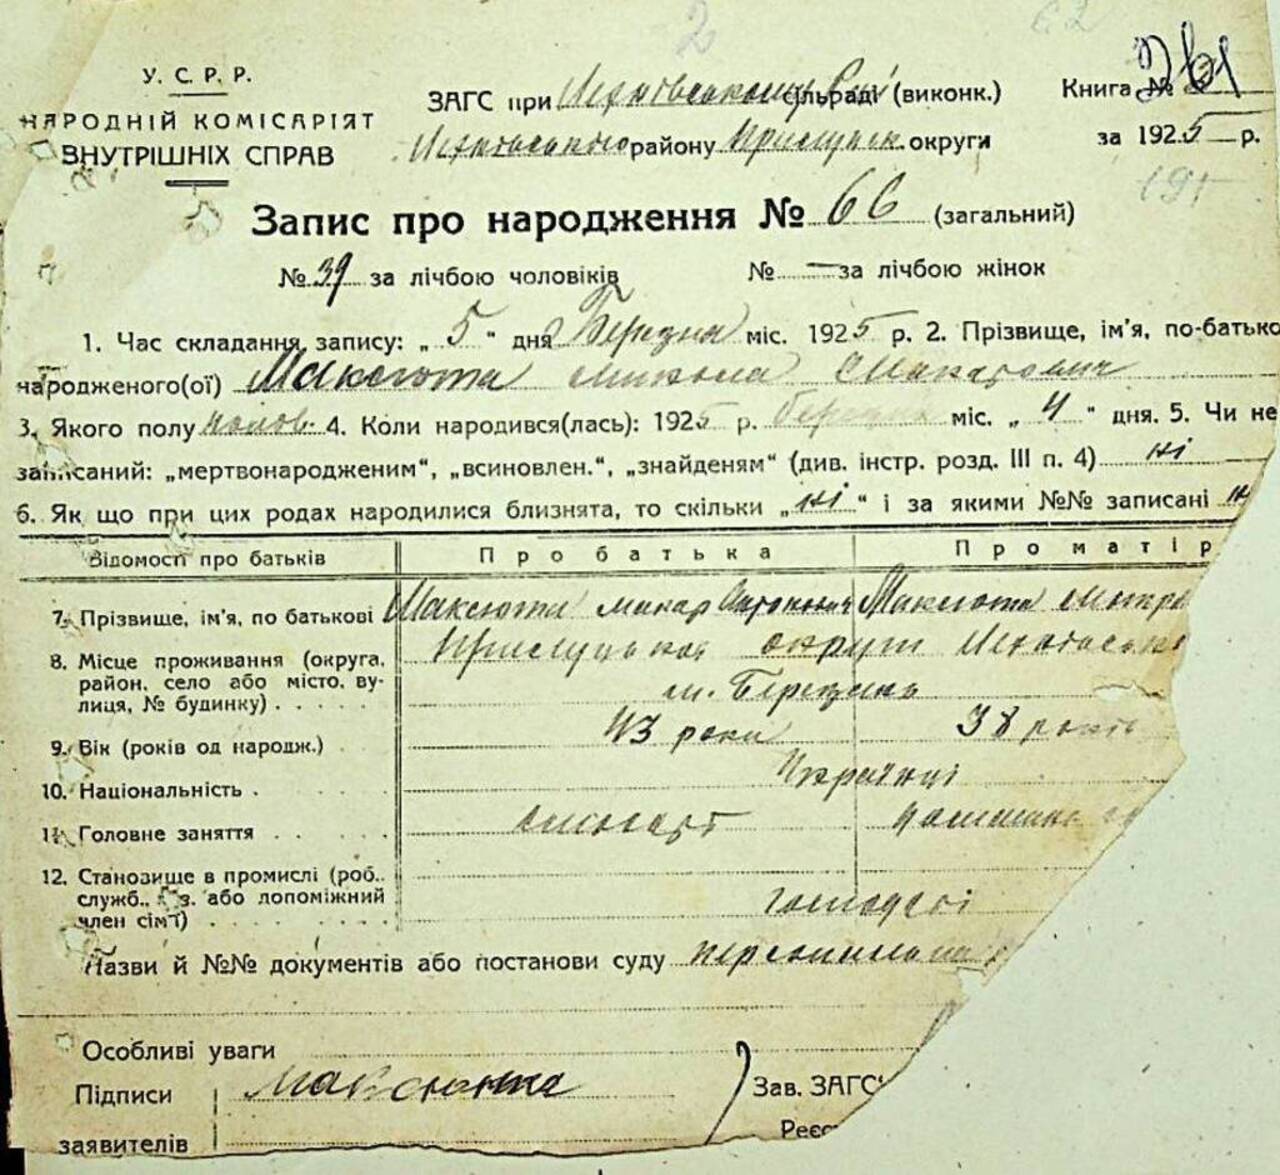 2
62
У. С. Р. Р.
НАРОДНІЙ КОМІСАРІЯТ
ВНУТРІШНІХ СПРАВ
ЗАГС при сільраді (виконк.)
району Прилуцьк. округи
Книга № 261
за 1925 р.
191
Запис про народження № 66 (загальний)
№ 39 за лічбою чоловіків № — за лічбою жінок
1. Час складання запису: „ 5 “ дня Березня міс. 1925 р. 2. Прізвище, ім'я, по-батько
народженого(ої) Максюта Микола Макарович
3. Якого полу чолов. 4. Коли народився(лась): 1925 р. березня міс. „ 4 “ дня. 5. Чи не
записаний: „мертвонародженим“, „всиновлен.“, „знайденям“ (див. інстр. розд. III п. 4) ні
6. Як що при цих родах народилися близнята, то скільки „ ні “ і за якими №№ записані
Відомості про батьків Про батька Про матір
7. Прізвище, ім'я, по батькові Максюта Макар Максюта Мотр
8. Місце проживання (округа, Прилуцької округи
район, село або місто, ву- м. Березань
лиця, № будинку)
9. Вік (років од народж.) 43 роки 38 років
10. Національність Українці
11. Головне заняття домашнє
12. Становище в промислі (роб..
служб.. з. або допоміжний господарі
член сім'ї)
Назви й №№ документів або постанови суду
Особливі уваги
Підписи Максюта Зав. ЗАГС
заявителів Реєс